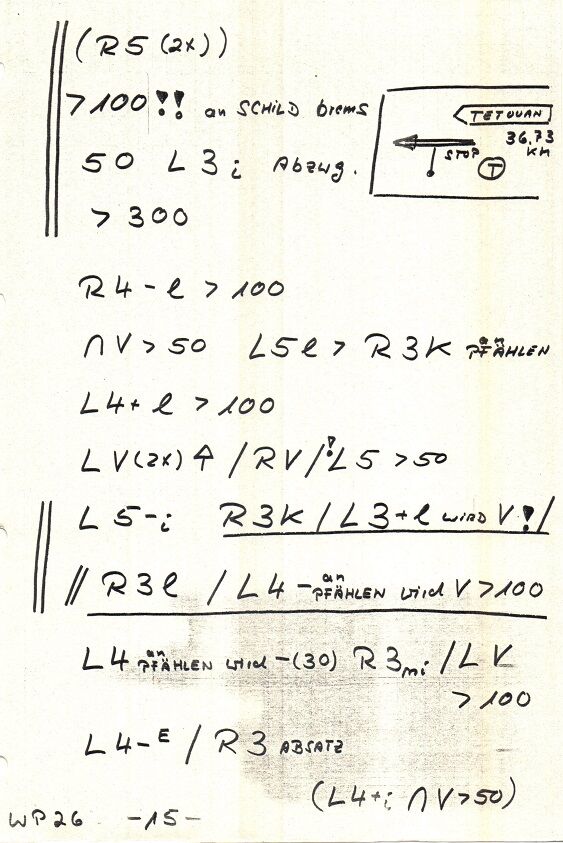 (R5 (2x))
>100 !! an SCHILD brems
TETOUAN
36,73
KM
STOP T
50 L3i Abzwg.
> 300
R4-l > 100
∩V > 50 L5l > R3K an PFÄHLEN
L4+l > 100
LV(2x)↑ /RV/!L5 >50
L5-i R3K / L3+l WIRD V!/
// R3l / L4- an PFÄHLEN wird V >100
L4 an PFÄHLEN wird -(30) R3mi / LV
> 100
L4-E / R3 ABSATZ
(L4+i ∩V>50)
WP26 -15-